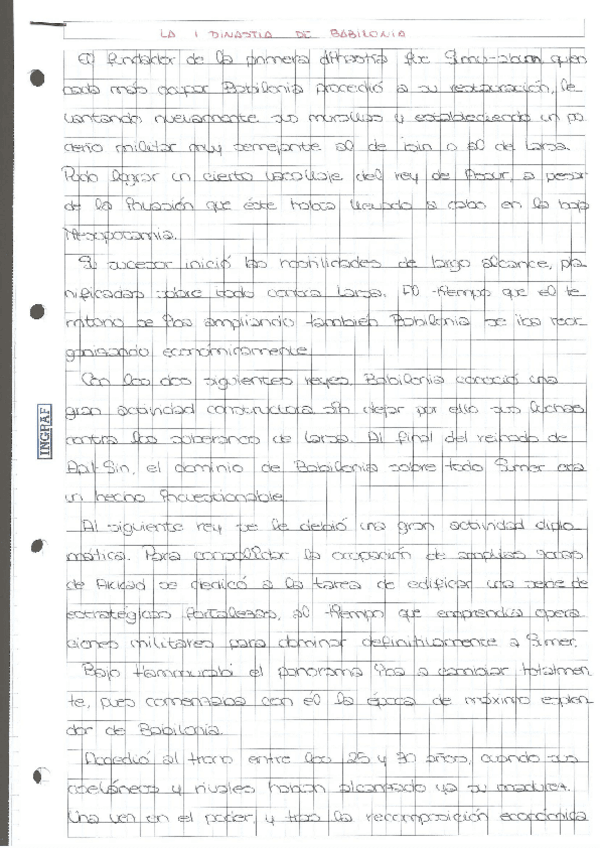 LA I DINASTIA DE BABILONIA
El fundador de la primera dinastía fue Sumu-abum quien
nada más ocupar Babilonia procedió a su restauración, le
vantando nuevamente sus murallas y estableciendo un po
derío militar muy semejante al de Isin o al de Larsa.
Pudo lograr un cierto vasallaje del rey de Assur, a pesar
de la invasión que éste había llevado a cabo en la baja
Mesopotamia.
Su sucesor inició las hostilidades de largo alcance, pla
nificadas sobre todo contra Larsa. Al tiempo que el te
rritorio se iba ampliando también Babilonia se iba reor
ganizando económicamente.
Con los dos siguientes reyes, Babilonia conoció una
gran actividad constructora sin dejar por ello sus luchas
contra los soberanos de Larsa. Al final del reinado de
Apil-Sin, el dominio de Babilonia sobre todo Sumer era
un hecho incuestionable.
Al siguiente rey se le debió una gran actividad diplo
mática. Para consolidar la ocupación de amplias zonas
de Akkad se dedicó a la tarea de edificar una serie de
estratégicas fortalezas, al tiempo que emprendía opera
ciones militares para dominar definitivamente a Sumer.
Bajo Hammurabi el panorama iba a cambiar totalmen
te, pues comenzaba con él la época de máximo esplen
dor de Babilonia.
Accedió al trono entre los 25 y 30 años, cuando sus
coetáneos y rivales habían alcanzado ya su madurez.
Una vez en el poder, y tras la recomposición económica
INGRAF